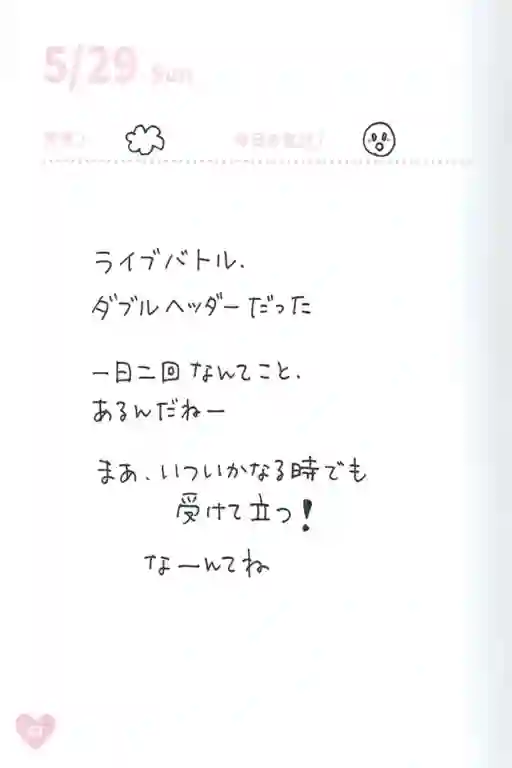 5/29 Sun
ライブバトル.
ダブルヘッダーだった
一日二回なんてこと.
あるんだねー
まあ、いついかなる時でも
受けて立つ!
なーんてね